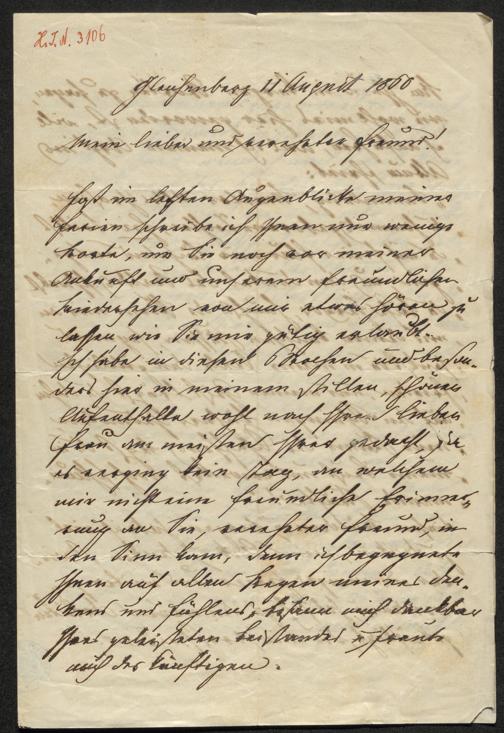 H.I.N. 3106
Gleichenberg 11 August 1860
Mein lieber und verehrter Freund!
Fast im letzten Augenblicke meiner
Ferien schreibe ich Ihnen nur wenige
Worte, um Sie noch vor meiner
Ankunft und unserem freundlichen
Wiedersehen von mir etwas hören zu
lassen wie Sie mir gütig erlaubt.
Ich habe in diesen Wochen und beson-
ders hier in meinem stillen, schönen
Aufenthalte wohl nach Ihrer lieben
Frau am meisten Ihrer gedacht, da
es verging kein Tag, an welchem
mir nicht eine freundliche Erinne-
rung an Sie, verehrter Freund, in
den Sinn kam, denn ich begegnete
Ihnen auf allen Wegen meines Den-
kens und Fühlens, besann mich dankbar
Ihres geleisteten Beistandes u freute
mich des künftigen.